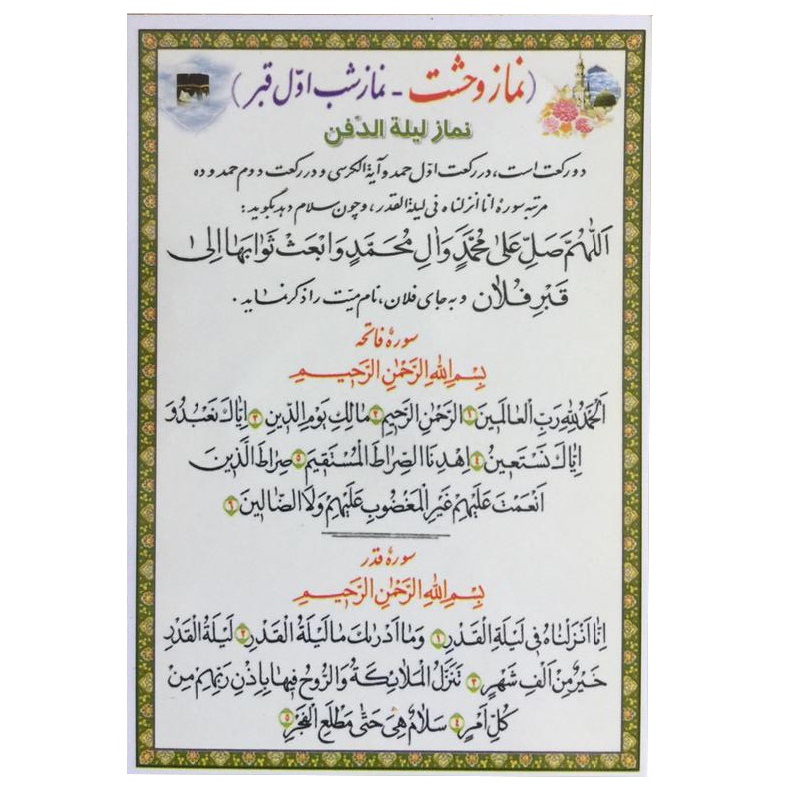 (نماز وحشت - نماز شب اوّل قبر)
نماز ليلة الدّفن
دو ركعت است، در ركعت اوّل حمد و آية الكرسى و در ركعت دوم حمد و ده
مرتبه سورهٔ انا انزلناه فى ليلة القدر، و چون سلام دهد بگويد:
اَللّٰهُمَّ صَلِّ عَلىٰ مُحَمَّدٍ وَاٰلِ مُحَمَّدٍ وَابْعَثْ ثَوابَهٰا اِلىٰ
قَبْرِ فُلٰانٍ و به جاى فلان، نام ميّت را ذكر نمايد.
سورهٔ فاتحه
بِسْمِ اللهِ الرَّحْمٰنِ الرَّحيمِ
اَلْحَمْدُ لِلّٰهِ رَبِّ الْعالَمينَ ۱ اَلرَّحْمٰنِ الرَّحيمِ ۲ مٰالِكِ يَوْمِ الدّينِ ۳ اِيّٰاكَ نَعْبُدُ وَ
اِيّٰاكَ نَسْتَعينُ ۴ اِهْدِنَا الصِّراطَ الْمُسْتَقيمَ ۵ صِراطَ الَّذينَ
اَنْعَمْتَ عَلَيْهِمْ غَيْرِ الْمَغْضُوبِ عَلَيْهِمْ وَلَا الضّٰالّينَ ۶
سورهٔ قدر
بِسْمِ اللهِ الرَّحْمٰنِ الرَّحيمِ
اِنّٰا اَنْزَلْنٰاهُ فى لَيْلَةِ الْقَدْرِ ۱ وَمٰا اَدْرٰىكَ مٰا لَيْلَةُ الْقَدْرِ ۲ لَيْلَةُ الْقَدْرِ
خَيْرٌ مِنْ اَلْفِ شَهْرٍ ۳ تَنَزَّلُ الْمَلٰائِكَةُ وَالرُّوحُ فيهٰا بِاِذْنِ رَبِّهِمْ مِنْ
كُلِّ اَمْرٍ ۴ سَلٰامٌ هِىَ حَتّٰى مَطْلَعِ الْفَجْرِ ۵